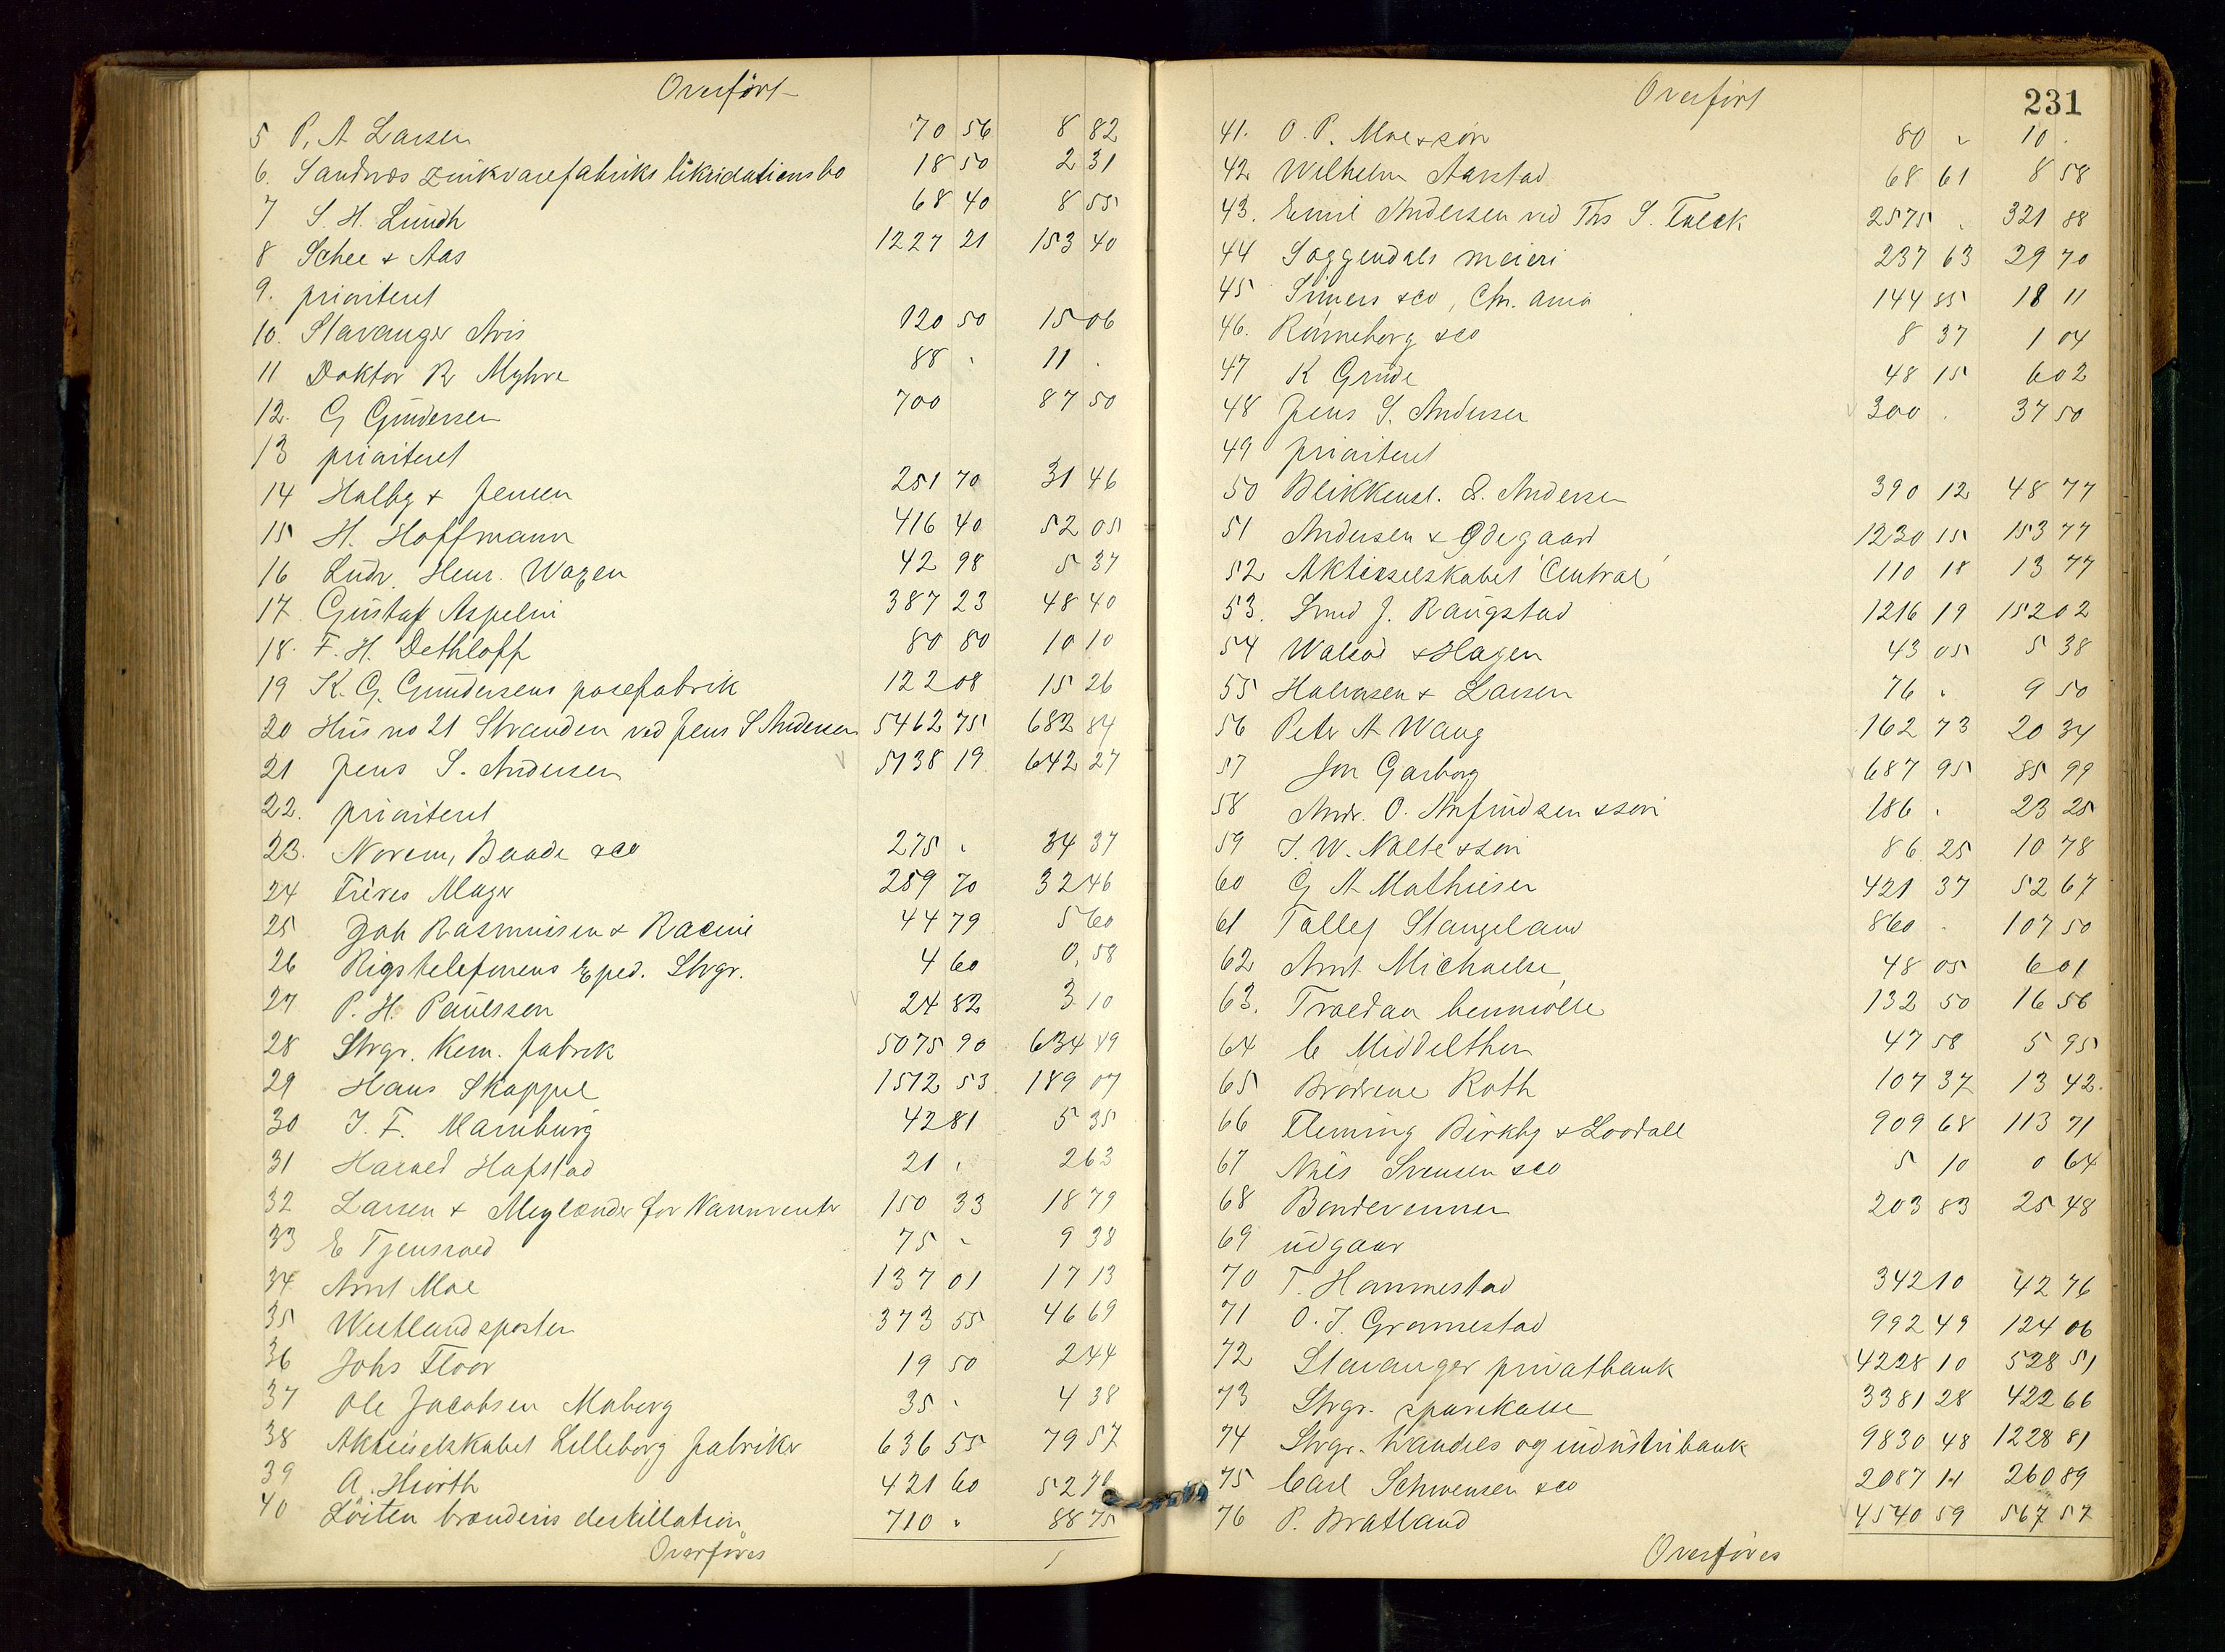 Overført
5 P. A. Larsen 70 56 8 82
6. Sandnæs zinkvarefabriks likvidationsbo 18 50 2 31
7 S. H. Lundh 68 40 8 55
8 Schee & Aas 1227 21 153 40
9. prioriteret
10. Stavanger Avis 120 50 15 06
11 Doktor R Myhre 88 - 11 .
12. G Gundersen 700 87 50
13 prioriteret
14 Halby & Jensen 251 70 31 46
15 H. Hoffmann 416 40 52 05
16 Ludv. Henr. Wagen 42 98 5 37
17. Gustaf Aspelin 387 23 48 40
18. F. H. Dethloff 80 80 10 10
19 K. G. Gundersens posefabrik 122 08 15 26
20 Hus no 21 Stranden ved Jens S Andersen 5462 75 682 84
21 Jens S. Andersen 5138 19 642 27
22. prioriteret
23. Norem, Baade & co 275 - 34 37
24 Frères Mager 259 70 32 46
25 Joh Rasmussen & Racine 44 79 5 60
26 Rigstelefonens Exped. Stvgr. 4 60 0,58
27 P. H. Paulssen 24 82 3 10
28 Stvgr. Kem. fabrik 5075 90 634 49
29 Hans Skappel 1512 53 189 07
30 J. F. Mamburg 42 81 5 35
31 Harald Hafstad 21 - 2 63
32 Larsen & Meglænder for Nannventr 150 33 18 79
33 E Tjensvold 75 - 9 38
34 Arnt Moe 137 01 17 13
35 Westlandsposten 373 55 46 69
36 Johs Floor 19 50 2 44
37 Ole Jacobsen Maberg 35 - 4 38
38 Aktieselskabet Lilleborg fabriker 636 55 79 57
39 A. Hiorth 421 60 52 70
40 Löiten brænderis destillation 710 - 88 75
Overføres
231
Overført
41. O. P. Moe & søn 80 - 10 .
42 Wilhelm Aarstad 68 61 8 58
43. Emil Andersen ved Ths S. Falck 2575 . 321 88
44 Soggendals meieri 237 63 29 70
45 Simers & co, Chr. ania 144 85 18 11
46. Rönneborg & co 8 37 1 04
47 K Grude 48 15 6 02
48 Jens S. Andersen 300 . 37 50
49 prioriteret
50 Blikkensl. S. Andersen 390 12 48 77
51 Andersen & Ødegaard 1230 15 153 77
52 Aktieselskabet "Central" 110 18 13 77
53. Svend J. Raugstad 1216 19 152 02
54 Walsøe & Hagen 43 05 5 38
55 Halvorsen & Larsen 76 - 9 50
56 Peter A Waug 162 73 20 34
57 Jon Garborg 687 95 85 99
58 Andr. O. Anfindsen & søn 186 - 23 25
59 J. W. Nolte & søn 86 25 10 78
60 G A Mathiesen 421 37 52 67
61 Tollef Stangeland 860 - 107 50
62 Arnt Michaelsen 48 05 6 01
63. Trædaa benmølle 132 50 16 56
64 C Middelthon 47 58 5 95
65 Brødrene Roth 107 37 13 42
66 Fleming Birkby & Goodall 909 68 113 71
67 Nils Svensen & co 5 10 0 64
68 Bondevennen 203 83 25 48
69 udgaar
70 T. Hommestad 342 10 42 76
71 O. J. Grannestad 992 49 124 06
72 Stavanger privatbank 4228 10 528 51
73 Stvgr. sparekasse 3381 28 422 66
74 Stvgr. handels og industribank 9830 48 1228 81
75 Carl Schwensen & co 2087 14 260 89
76 P. Bratland 4540 59 567 57
Overføres